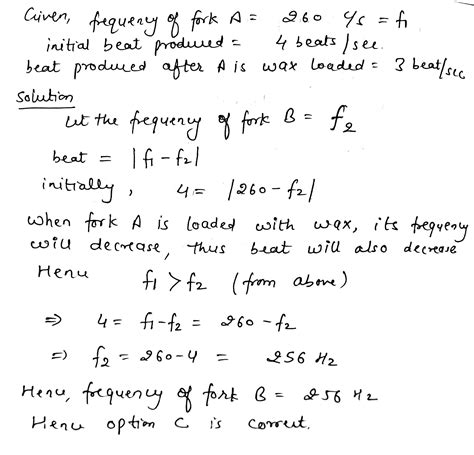 Given, frequency of fork A = 260 c/s = f1
initial beat produced = 4 beats/sec.
beat produced after A is wax loaded = 3 beat/sec
Solution
Let the frequency of fork B = f2
beat = |f1-f2|
initially, 4 = |260-f2|
when fork A is loaded with wax, its frequency
will decrease, thus beat will also decrease
Hence f1 > f2 (from above)
⇒ 4 = f1-f2 = 260-f2
⇒ f2 = 260-4 = 256 Hz
Hence, frequency of fork B = 256 Hz
Hence option C is correct.